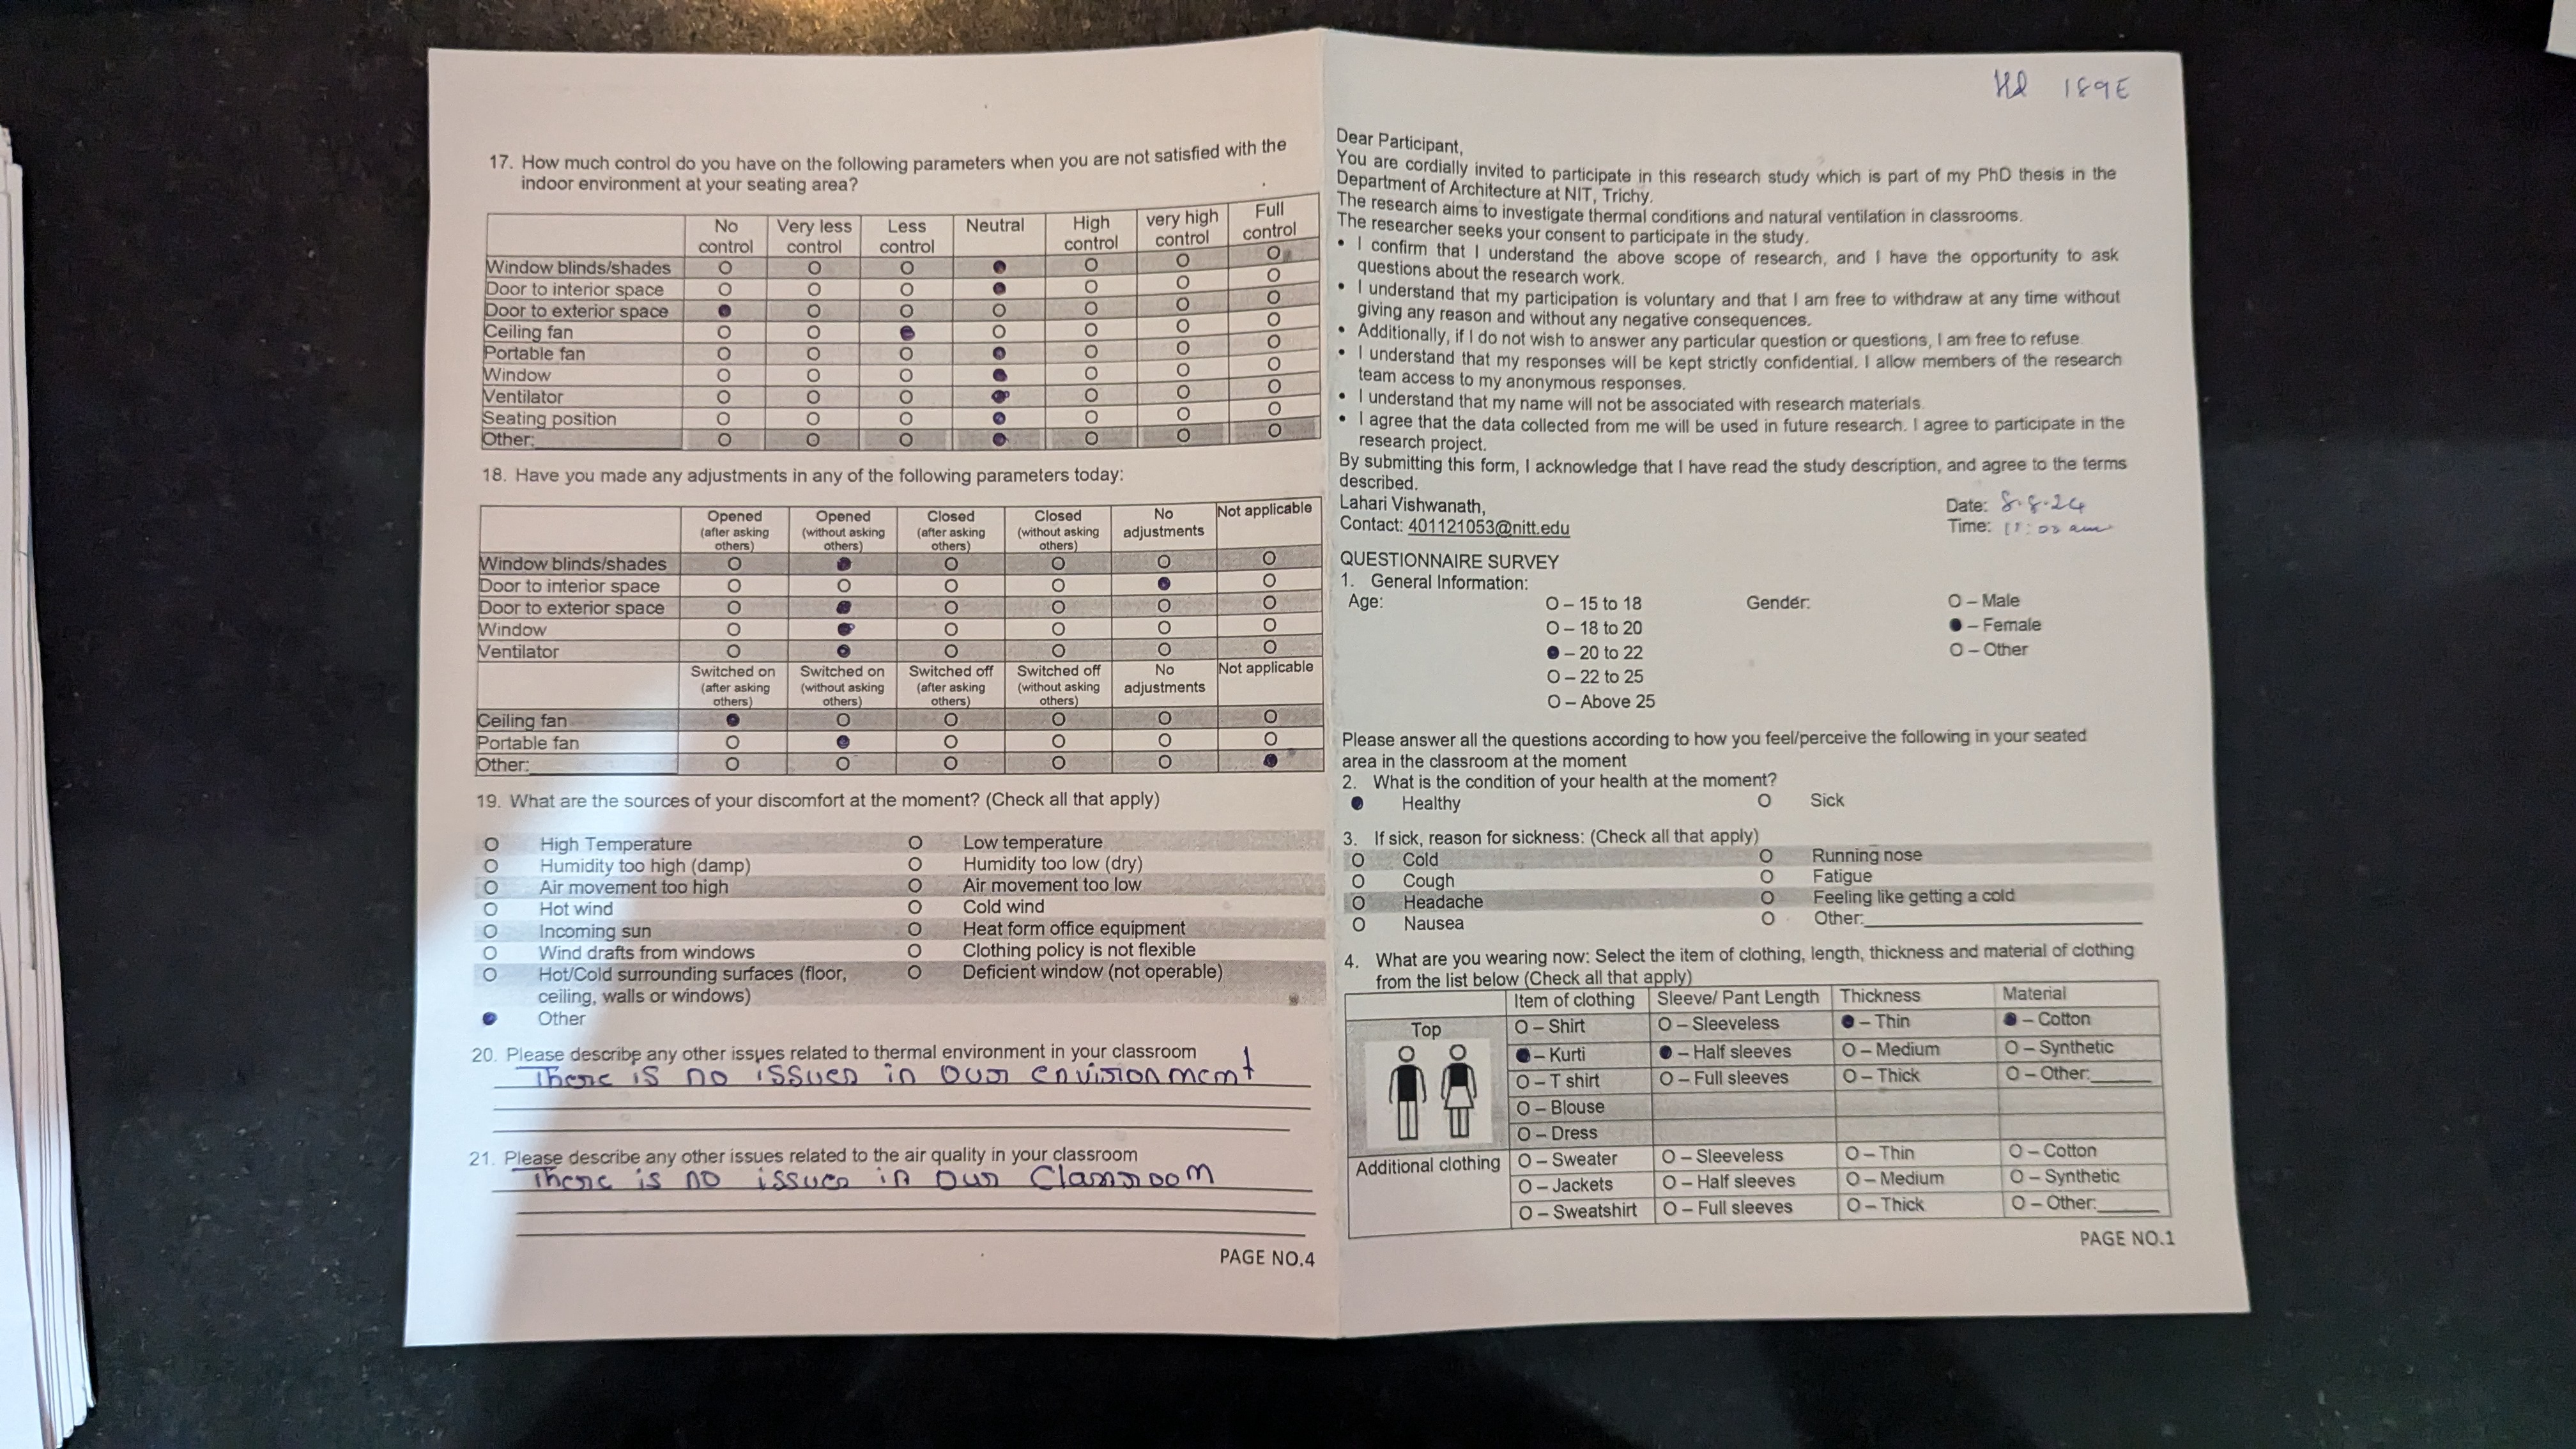 17. How much control do you have on the following parameters when you are not satisfied with the
indoor environment at your seating area?
No control Very less control Less control Neutral High control very high control Full control
Window blinds/shades O O O ● O O O
Door to interior space O O O ● O O O
Door to exterior space ● O O O O O O
Ceiling fan O O ● O O O O
Portable fan O O O ● O O O
Window O O O ● O O O
Ventilator O O O ● O O O
Seating position O O O ● O O O
Other: O O O ● O O O
18. Have you made any adjustments in any of the following parameters today:
Opened (after asking others) Opened (without asking others) Closed (after asking others) Closed (without asking others) No adjustments Not applicable
Window blinds/shades O ● O O O O
Door to interior space O O O O ● O
Door to exterior space O ● O O O O
Window O ● O O O O
Ventilator O ● O O O O
Switched on (after asking others) Switched on (without asking others) Switched off (after asking others) Switched off (without asking others) No adjustments Not applicable
Ceiling fan ● O O O O O
Portable fan O ● O O O O
Other: O O O O O ●
19. What are the sources of your discomfort at the moment? (Check all that apply)
O High Temperature O Low temperature
O Humidity too high (damp) O Humidity too low (dry)
O Air movement too high O Air movement too low
O Hot wind O Cold wind
O Incoming sun O Heat form office equipment
O Wind drafts from windows O Clothing policy is not flexible
O Hot/Cold surrounding surfaces (floor, O Deficient window (not operable)
ceiling, walls or windows)
● Other
20. Please describe any other issues related to thermal environment in your classroom
There is no issues in our environment
21. Please describe any other issues related to the air quality in your classroom
There is no issues in our Classroom
PAGE NO.4
189E
Dear Participant,
You are cordially invited to participate in this research study which is part of my PhD thesis in the
Department of Architecture at NIT, Trichy.
The research aims to investigate thermal conditions and natural ventilation in classrooms.
The researcher seeks your consent to participate in the study.
• I confirm that I understand the above scope of research, and I have the opportunity to ask
questions about the research work.
• I understand that my participation is voluntary and that I am free to withdraw at any time without
giving any reason and without any negative consequences.
• Additionally, if I do not wish to answer any particular question or questions, I am free to refuse.
• I understand that my responses will be kept strictly confidential. I allow members of the research
team access to my anonymous responses.
• I understand that my name will not be associated with research materials.
• I agree that the data collected from me will be used in future research. I agree to participate in the
research project.
By submitting this form, I acknowledge that I have read the study description, and agree to the terms
described.
Lahari Vishwanath, Date: 8.8.24
Contact: 401121053@nitt.edu Time: 11:00 am
QUESTIONNAIRE SURVEY
1. General Information:
Age: O – 15 to 18 Gender: O – Male
O – 18 to 20 ● – Female
● – 20 to 22 O – Other
O – 22 to 25
O – Above 25
Please answer all the questions according to how you feel/perceive the following in your seated
area in the classroom at the moment
2. What is the condition of your health at the moment?
● Healthy O Sick
3. If sick, reason for sickness: (Check all that apply)
O Cold O Running nose
O Cough O Fatigue
O Headache O Feeling like getting a cold
O Nausea O Other:
4. What are you wearing now: Select the item of clothing, length, thickness and material of clothing
from the list below (Check all that apply)
Item of clothing Sleeve/ Pant Length Thickness Material
Top O – Shirt O – Sleeveless ● – Thin ● – Cotton
● – Kurti ● – Half sleeves O – Medium O – Synthetic
O – T shirt O – Full sleeves O – Thick O – Other:
O – Blouse
O – Dress
Additional clothing O – Sweater O – Sleeveless O – Thin O – Cotton
O – Jackets O – Half sleeves O – Medium O – Synthetic
O – Sweatshirt O – Full sleeves O – Thick O – Other:
PAGE NO.1